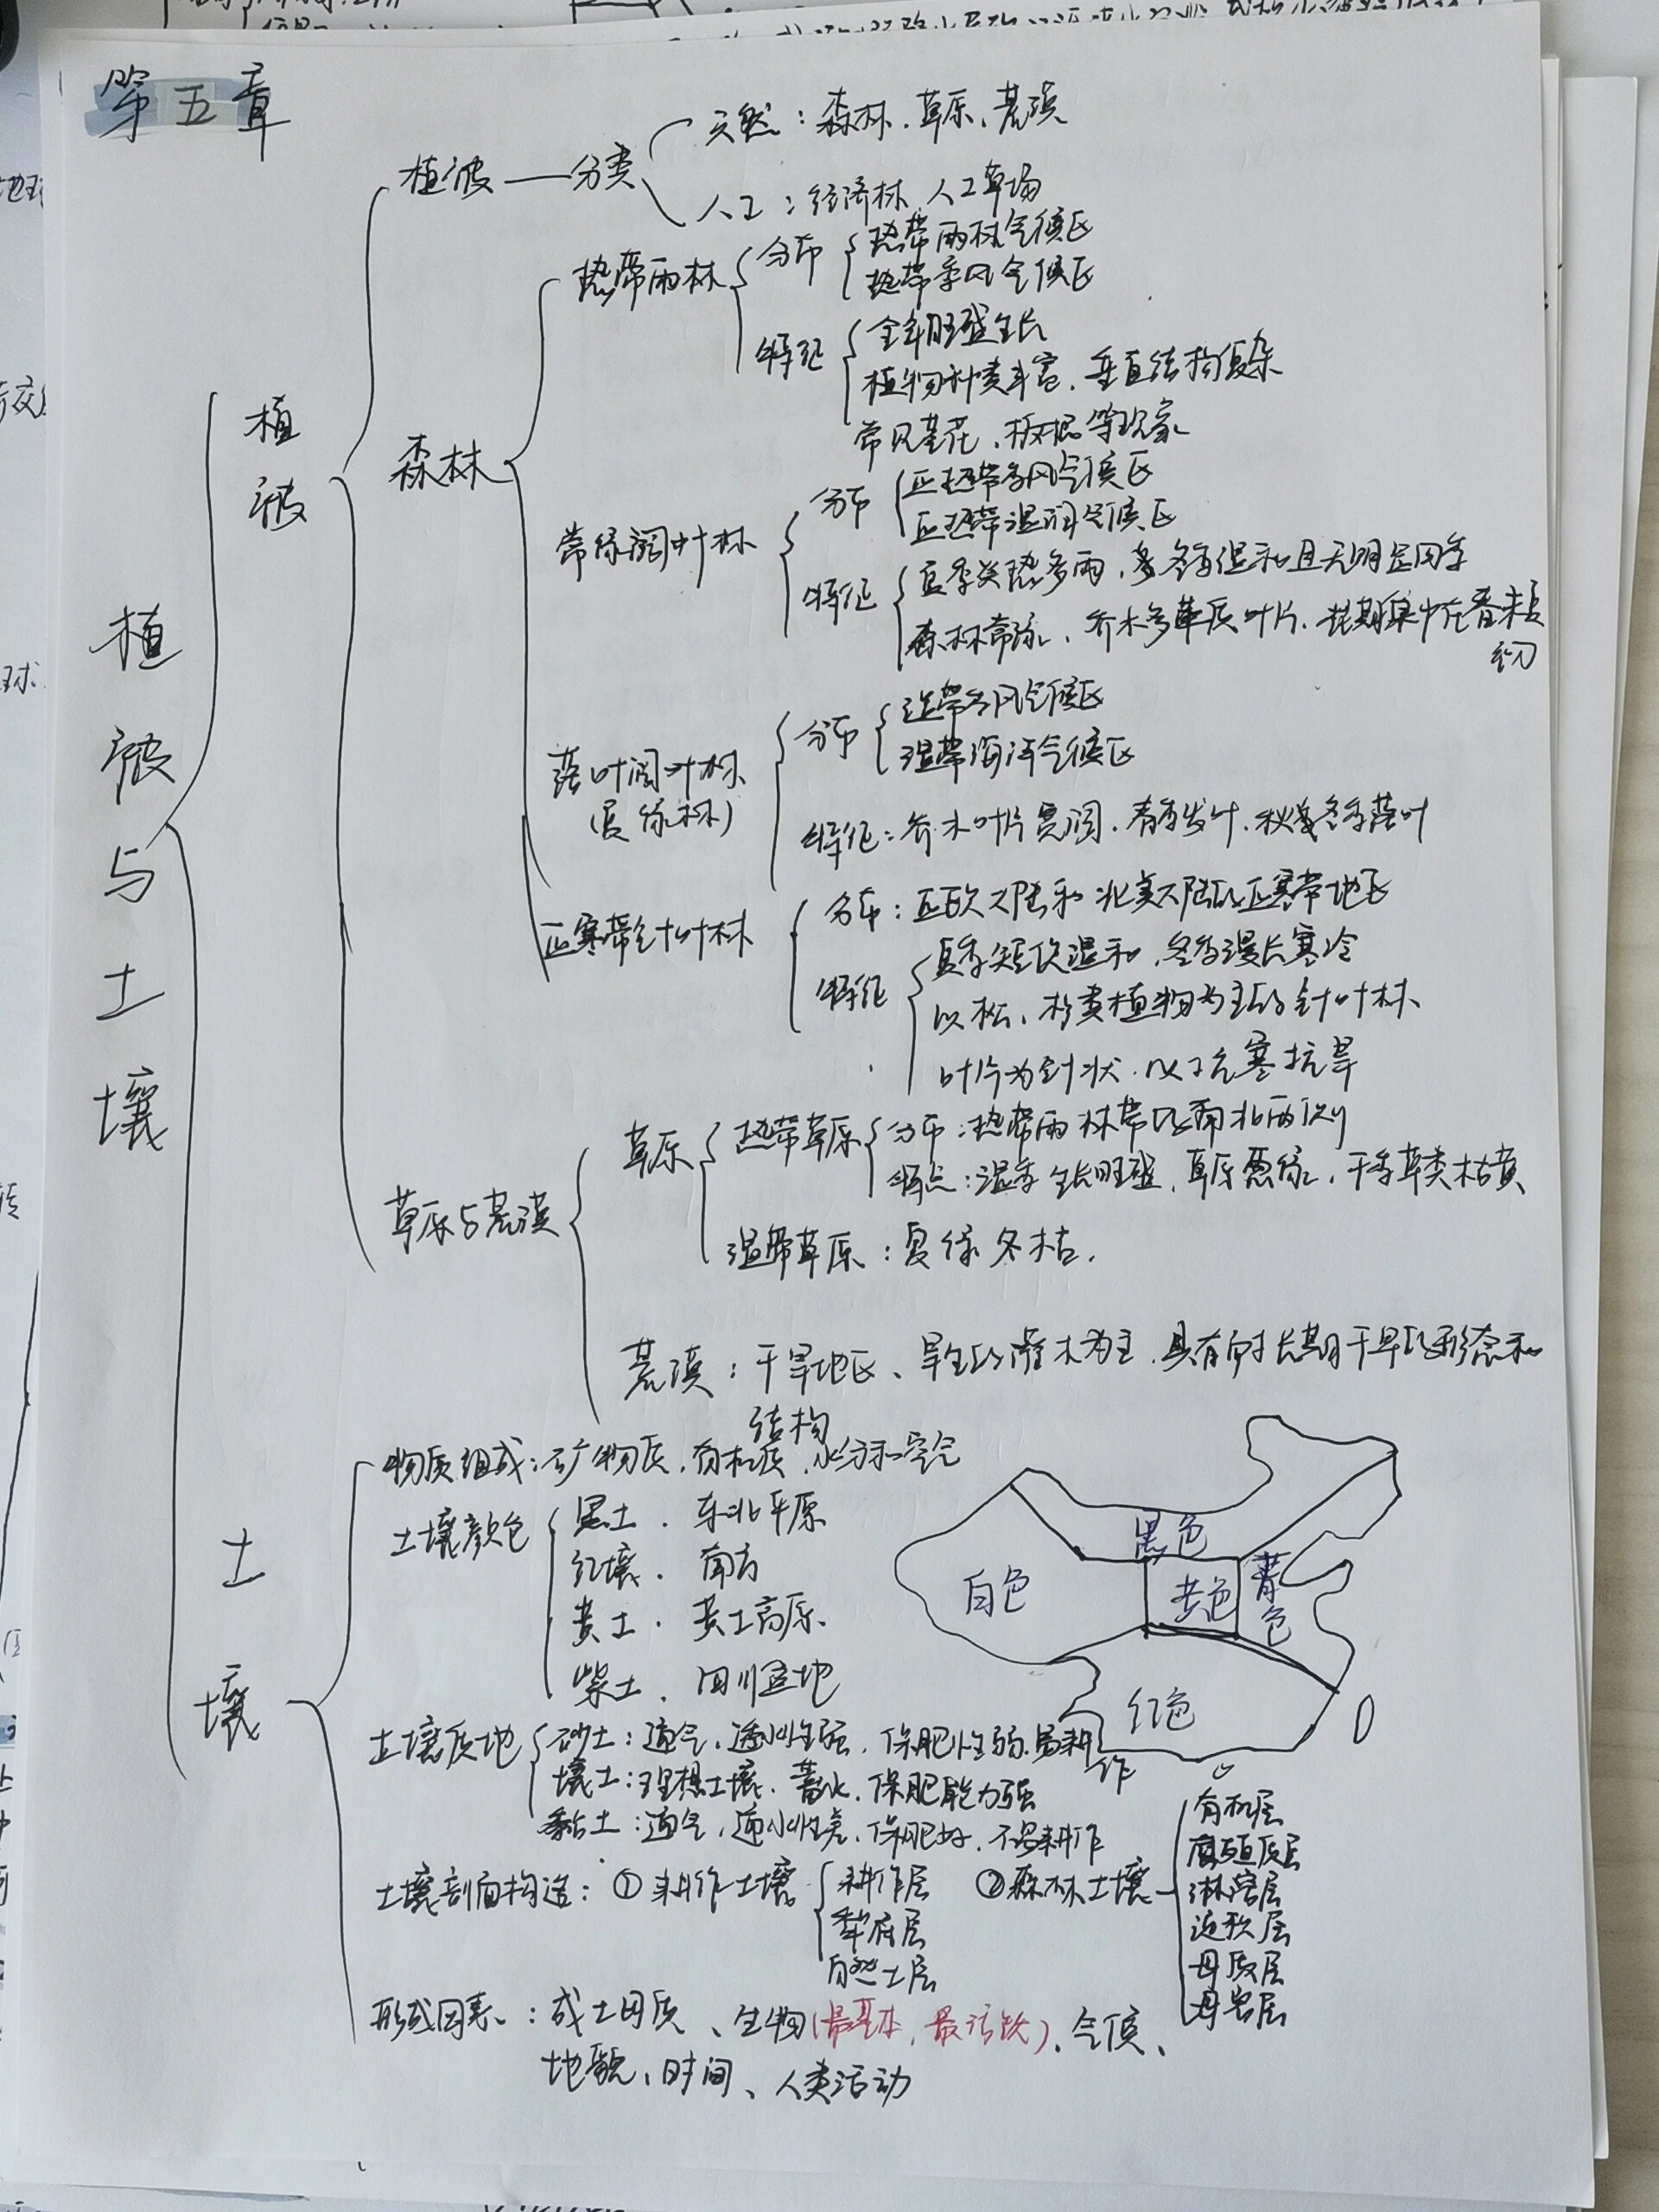 第五章
植被与土壤
植被
植被 — 分类
天然：森林、草原、荒漠
人工：经济林、人工草场
森林
热带雨林
分布
热带雨林气候区
热带季风气候区
特征
全年旺盛生长
植物种类丰富、垂直结构复杂
常见茎花、板根等现象
常绿阔叶林
分布
亚热带季风气候区
亚热带湿润气候区
特征
夏季炎热多雨，冬季温和且无明显干季
森林常绿、乔木多革质叶片、花期集中在春末夏初
落叶阔叶林
(夏绿林)
分布
温带季风气候区
温带海洋气候区
特征：乔木叶片宽阔、春季发叶、秋冬季落叶
亚寒带针叶林
分布：亚欧大陆和北美大陆的亚寒带地区
特征
夏季短促温和、冬季漫长寒冷
以松、杉类植物为主的针叶林
叶片为针状、以抗寒抗旱
草原与荒漠
草原
热带草原
分布：热带雨林带的南北两侧
特点：湿季生长旺盛，草原葱绿，干季草类枯黄
温带草原：夏绿冬枯．
荒漠：干旱地区、旱生的灌木为主、具有耐长期干旱的形态和
结构
土壤
物质组成：矿物质、有机质、水分和空气
土壤颜色
黑土．东北平原
红壤．南方
黄土．黄土高原
紫土．四川盆地
白色
黑色
黄色
青色
红色
土壤质地
砂土：通气、透水性强、保肥性弱、易耕作
壤土：理想土壤、蓄水、保肥能力强
黏土：通气、透水性差、保肥好、不易耕作
土壤剖面构造：①耕作土壤
耕作层
犁底层
自然土层
②森林土壤
有机层
腐殖质层
淋溶层
淀积层
母质层
母岩层
形成因素：成土母质、生物(最基本，最活跃)、气候、
地貌、时间、人类活动